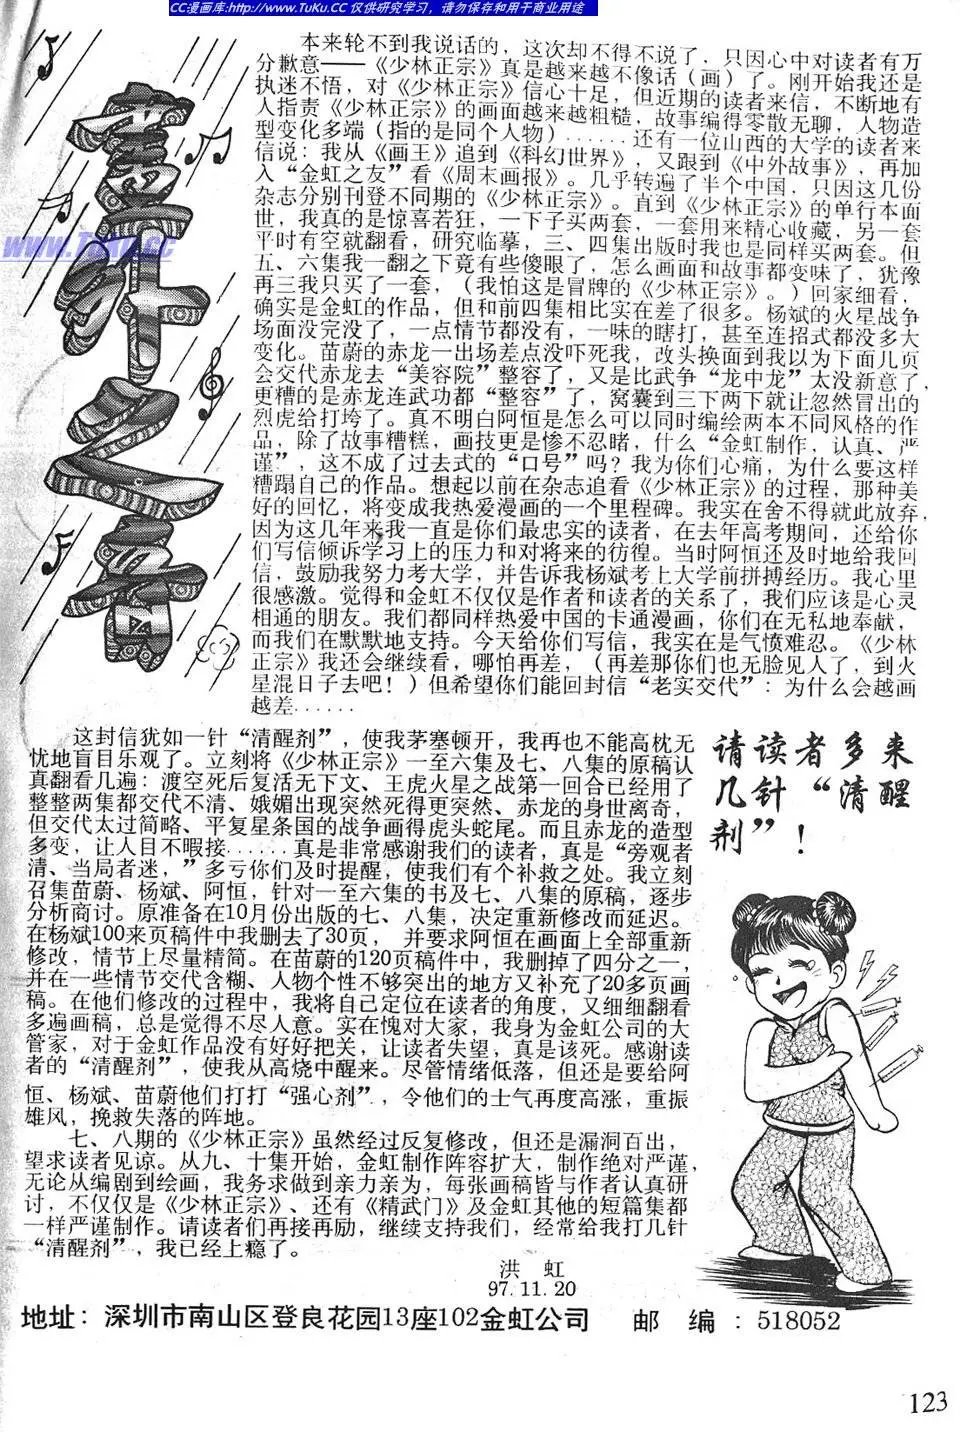 CC漫画库:www.TuKu.CC 仅供研究学习，请勿保存和用于商业用途
画外之音
www.Tuku.cc
本来轮不到我说话的，这次却不得不说了，只因心中对读者有万
分歉意——《少林正宗》真是越来越不像话（画）了。刚开始我还是
执迷不悟，对《少林正宗》信心十足，但近期的读者来信，不断地有
人指责《少林正宗》的画面越来越粗糙，故事编得零散无聊，人物造
型变化多端（指的是同个人物）......还有一位山西的大学的读者来
信说：我从《画王》追到《科幻世界》，又跟到《中外故事》，再加
入“金虹之友”看《周末画报》。几乎转遍了半个中国，只因这几份
杂志分别刊登不同期的《少林正宗》。直到《少林正宗》的单行本面
世，我真的是惊喜若狂，一下子买两套，一套用来精心收藏，另一套
平时有空就翻看，研究临摹，三、四集出版时我也是同样买两套。但
五、六集我一翻之下竟有些傻眼了，怎么画面和故事都变味了，犹豫
再三我只买了一套，（我怕这是冒牌的《少林正宗》。）回家细看，
确实是金虹的作品，但和前四集相比实在差了很多。杨斌的火星战争
场面没完没了，一点情节都没有，一味的瞎打，甚至连招式都没多大
变化。苗蔚的赤龙一出场差点没吓死我，改头换面到我以为下面几页
会交代赤龙去“美容院”整容了，又是比武争“龙中龙”太没新意了，
更糟的是赤龙连武功都“整容”了，窝囊到三下两下就让忽然冒出的
烈虎给打垮了。真不明白阿恒是怎么可以同时编绘两本不同风格的作
品，除了故事糟糕，画技更是惨不忍睹，什么“金虹制作，认真、严
谨”，这不成了过去式的“口号”吗？我为你们心痛，为什么要这样
糟蹋自己的作品。想起以前在杂志追看《少林正宗》的过程，那种美
好的回忆，将变成我热爱漫画的一个里程碑。我实在舍不得就此放弃，
因为这几年来我一直是你们最忠实的读者，在去年高考期间，还给你
们写信倾诉学习上的压力和对将来的彷徨。当时阿恒还及时地给我回
信，鼓励我努力考大学，并告诉我杨斌考上大学前拼搏经历。我心里
很感激。觉得和金虹不仅仅是作者和读者的关系了，我们应该是心灵
相通的朋友。我们都同样热爱中国的卡通漫画，你们在无私地奉献，
而我们在默默地支持。今天给你们写信，我实在是气愤难忍。《少林
正宗》我还会继续看，哪怕再差，（再差那你们也无脸见人了，到火
星混日子去吧！）但希望你们能回封信“老实交代”：为什么会越画
越差......
这封信犹如一针“清醒剂”，使我茅塞顿开，我再也不能高枕无
忧地盲目乐观了。立刻将《少林正宗》一至六集及七、八集的原稿认
真翻看几遍：渡空死后复活无下文、王虎火星之战第一回合已经用了
整整两集都交代不清、娥媚出现突然死得更突然、赤龙的身世离奇，
但交代太过简略、平复星条国的战争画得虎头蛇尾。而且赤龙的造型
多变，让人目不暇接......真是非常感谢我们的读者，真是“旁观者
清、当局者迷，”多亏你们及时提醒，使我们有个补救之处。我立刻
召集苗蔚、杨斌、阿恒，针对一至六集的书及七、八集的原稿，逐步
分析商讨。原准备在10月份出版的七、八集，决定重新修改而延迟。
在杨斌100来页稿件中我删去了30页， 并要求阿恒在画面上全部重新
修改，情节上尽量精简。在苗蔚的120页稿件中，我删掉了四分之一，
并在一些情节交代含糊、人物个性不够突出的地方又补充了20多页画
稿。在他们修改的过程中，我将自己定位在读者的角度，又细细翻看
多遍画稿，总是觉得不尽人意。实在愧对大家，我身为金虹公司的大
管家，对于金虹作品没有好好把关，让读者失望，真是该死。感谢读
者的“清醒剂”，使我从高烧中醒来。尽管情绪低落，但还是要给阿
恒、杨斌、苗蔚他们打打“强心剂”，令他们的士气再度高涨，重振
雄风，挽救失落的阵地。
七、八期的《少林正宗》虽然经过反复修改，但还是漏洞百出，
望求读者见谅。从九、十集开始，金虹制作阵容扩大，制作绝对严谨，
无论从编剧到绘画，我务求做到亲力亲为，每张画稿皆与作者认真研
讨，不仅仅是《少林正宗》、还有《精武门》及金虹其他的短篇集都
一样严谨制作。请读者们再接再励，继续支持我们，经常给我打几针
“清醒剂”，我已经上瘾了。
洪 虹
97.11.20
请读者多来
几针“清醒
剂”！
地址：深圳市南山区登良花园13座102金虹公司 邮 编：518052
123